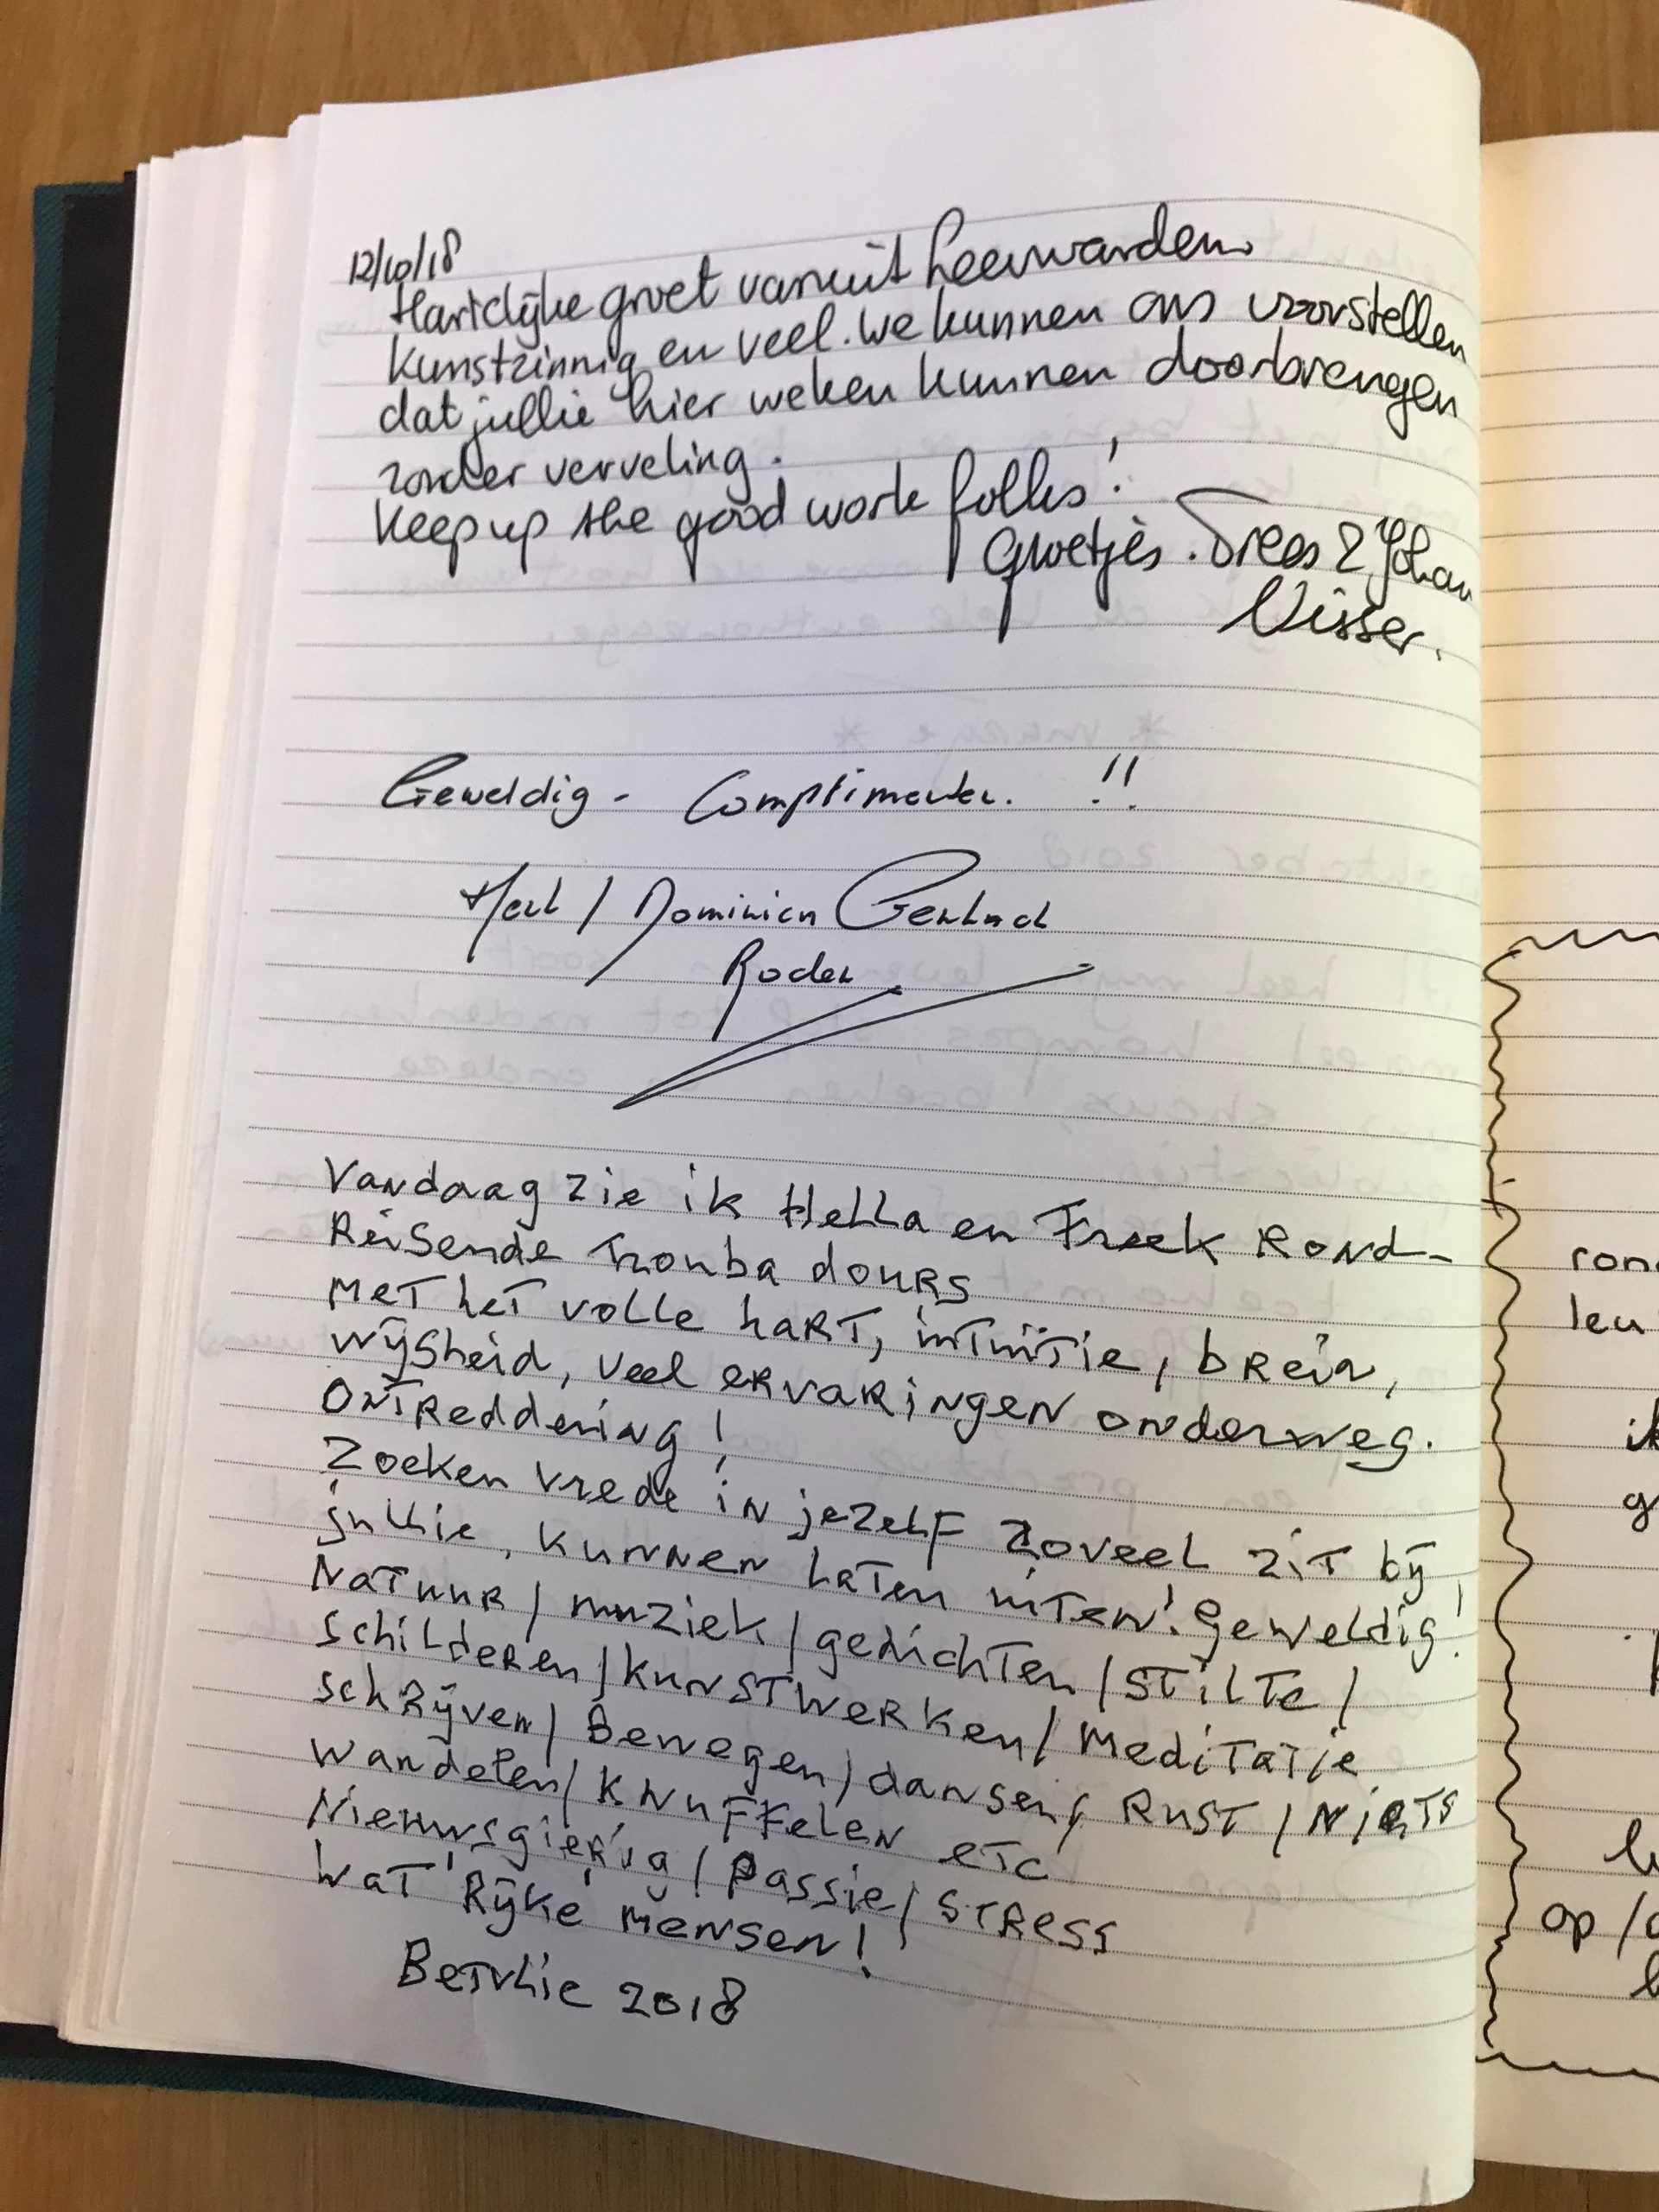 12/10/18
Hartelijke groet vanuit Leeuwarden.
Kunstzinnig en veel. We kunnen ons voorstellen
dat jullie hier weken kunnen doorbrengen
zonder verveling.
Keep up the good work folks!
Groetjes. Trees & Johan
Visser.
Geweldig - Complimenten. !!
Dominicn Gerlach
Roden
Vandaag zie ik Hella en Freek Rond-
Reisende Troubadours
Met het volle hart, intuïtie, brein,
wijsheid, veel ervaringen onderweg.
Ontreddering!
Zoeken vrede in jezelf zoveel zit bij
jullie, kunnen laten uiten! Geweldig!
Natuur / muziek / gedichten / stilte /
schilderen / kunstwerken / Meditatie
schrijven / Bewegen / dansen / Rust / Niets
wandelen / knuffelen etc
Nieuwsgierig / Passie / STRESS
Wat Rijke mensen!
2018
rond
leu
op /